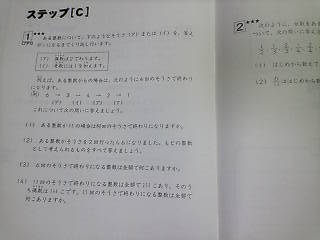 ステップ[C]
1 ★★★
ある整数について、下のようなそうさ(ア)または(イ)を、答え
が1になるまでくり返し行います。
(ア) 偶数は2でわります。
(イ) 奇数には1をたします。
例えば、ある整数が6の場合は、次のように4回のそうさで終わり
になります。
(例) 6 → 3 → 4 → 2 → 1
(ア) (イ) (ア) (ア)
これについて、次の問いに答えましょう。
(1) ある整数が11の場合は何回のそうさで終わりになりますか。
(2) ある整数がそうさを2回行ったら6になりました。もとの整数
として考えられるものをすべて答えましょう。
(3) 6回のそうさで終わりになる整数は全部で何こありますか。
(4)
のそうさで終わりになる整数は全部で
こあり、そのう
ち
こです。
のそうさで終わりになる整数は全部で
何こありますか。
2 ★★★
次のように、分数を
ついて、次の問いに答
(1) はじめから数えて
(2)
ははじめから数